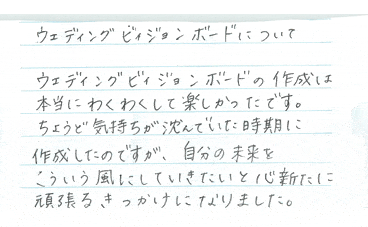 ウェディングビィジョンボードについて
ウェディングビィジョンボードの作成は
本当にわくわくして楽しかったです。
ちょうど気持ちが沈んでいた時期に
作成したのですが、自分の未来を
こういう風にしていきたいと心新たに
頑張るきっかけになりました。